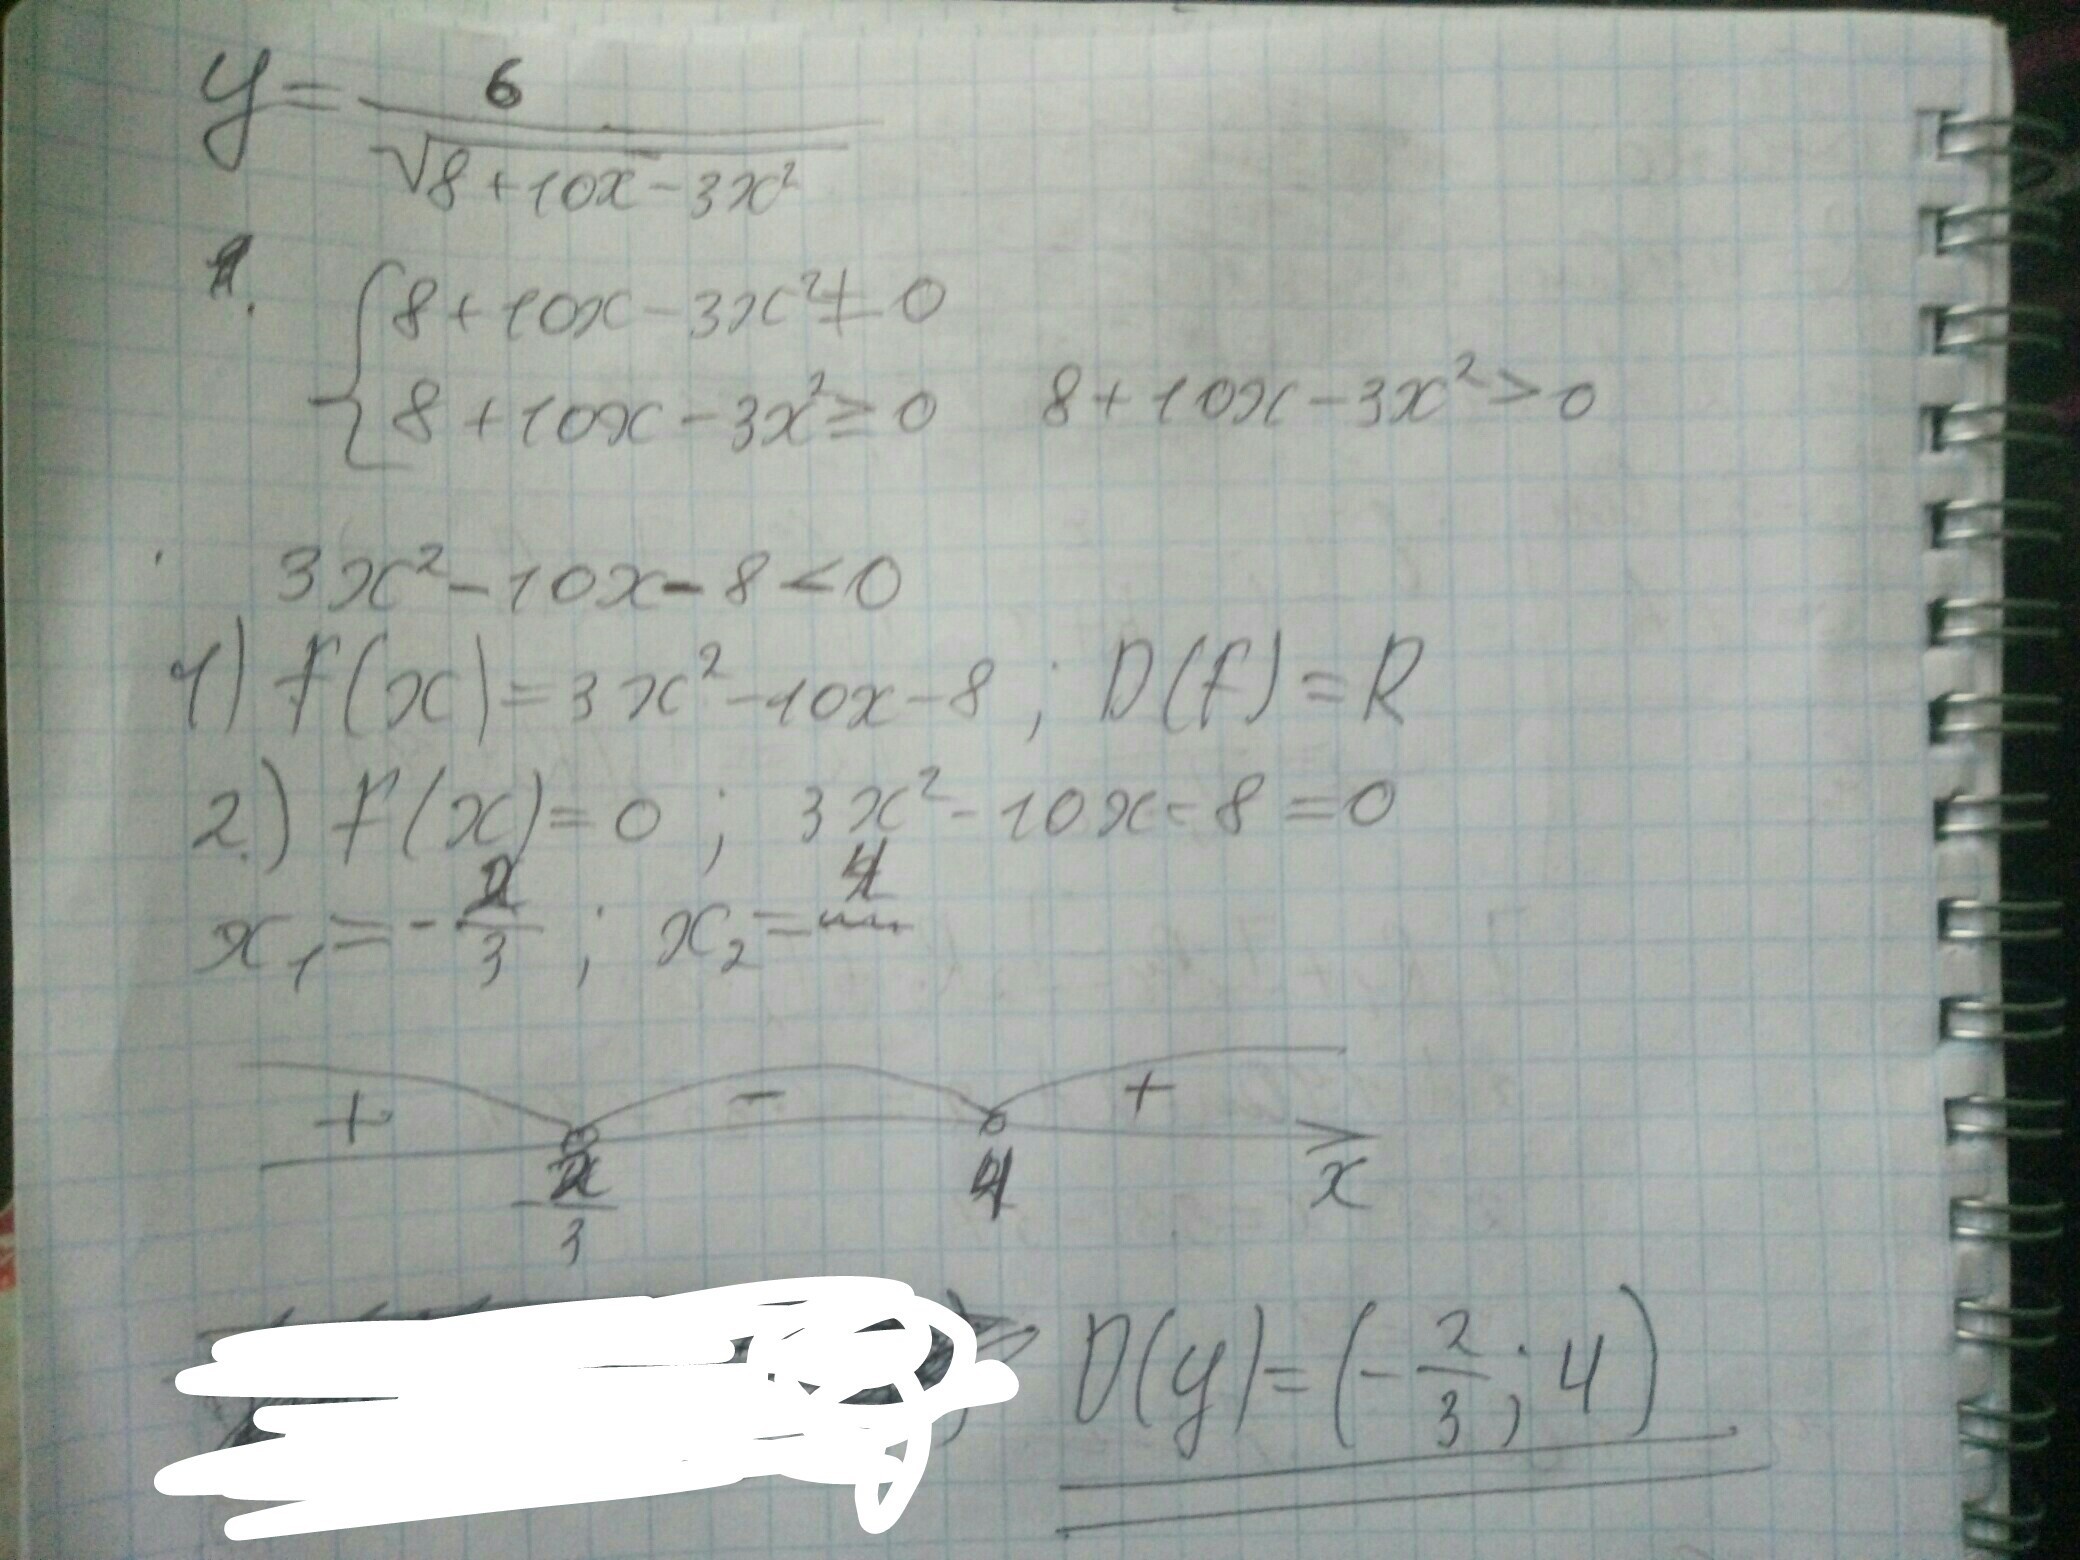 y = 6 / √8+10x-3x²
1. { 8+10x-3x² ≠ 0
8+10x-3x² ≥ 0   8+10x-3x² > 0
3x²-10x-8 < 0
1) f(x) = 3x²-10x-8 ; D(f) = R
2.) f(x) = 0 ; 3x²-10x-8 = 0
x₁ = -2/3 ; x₂ = 4
+ - +
-2/3 4 x
D(y) = (-2/3 ; 4)